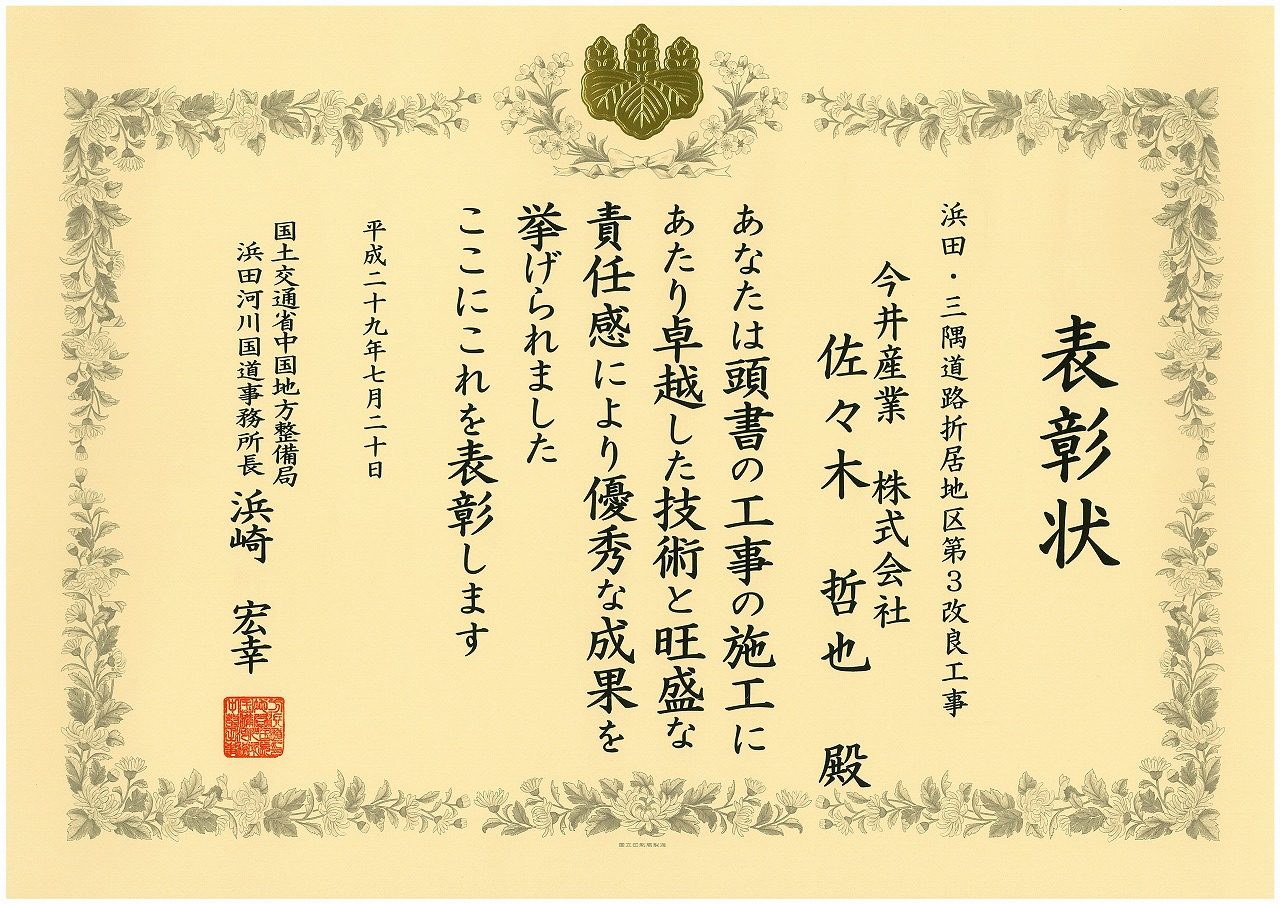 表彰状
浜田・三隅道路折居地区第３改良工事
今井産業　株式会社
佐々木　哲也　殿
あなたは頭書の工事の施工に
あたり卓越した技術と旺盛な
責任感により優秀な成果を
挙げられました
ここにこれを表彰します
平成二十九年七月二十日
国土交通省中国地方整備局
浜田河川国道事務所長　浜崎　宏幸
国立印刷局製造